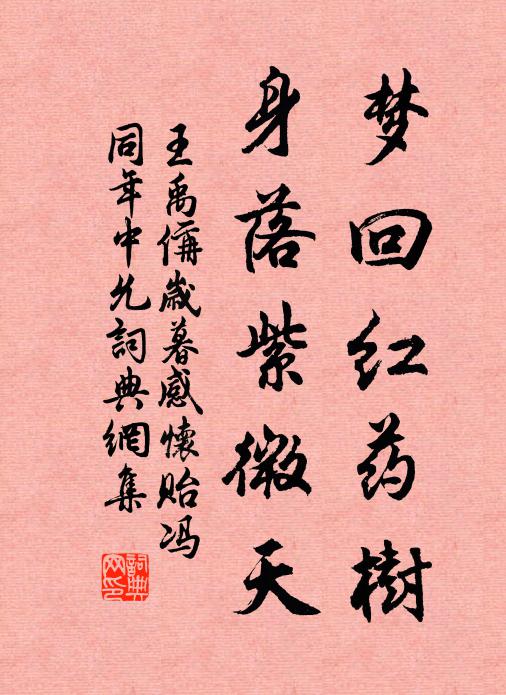 梦回红药樹
身落紫微天
王禹偁歲暮感懷贻冯
同年中允詞典網集
詞典网印